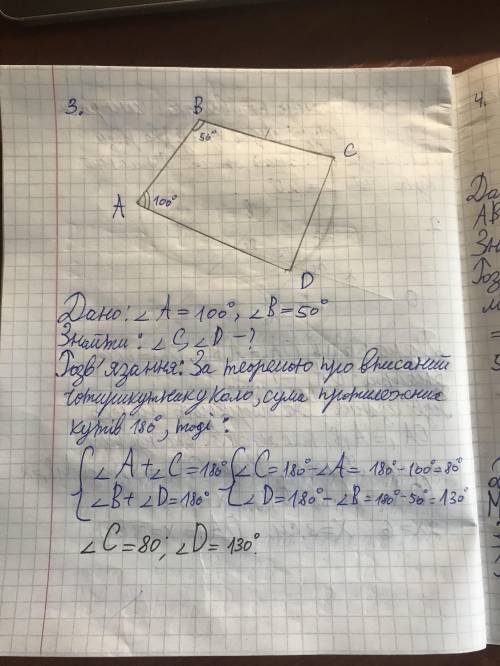 3.
B
50°
C
A
100°
D
4.
Дано: ∠A = 100°, ∠B = 50°
Знайти: ∠C, ∠D - ?
Розв'язання: За теоремою про вписаний
чотирикутник у коло, сума протилежних
кутів 180°, тоді:
{ ∠A + ∠C = 180° { ∠C = 180° - ∠A = 180° - 100° = 80°
∠B + ∠D = 180° ∠D = 180° - ∠B = 180° - 50° = 130°
∠C = 80; ∠D = 130°.
Да
AB
Зн
Роз